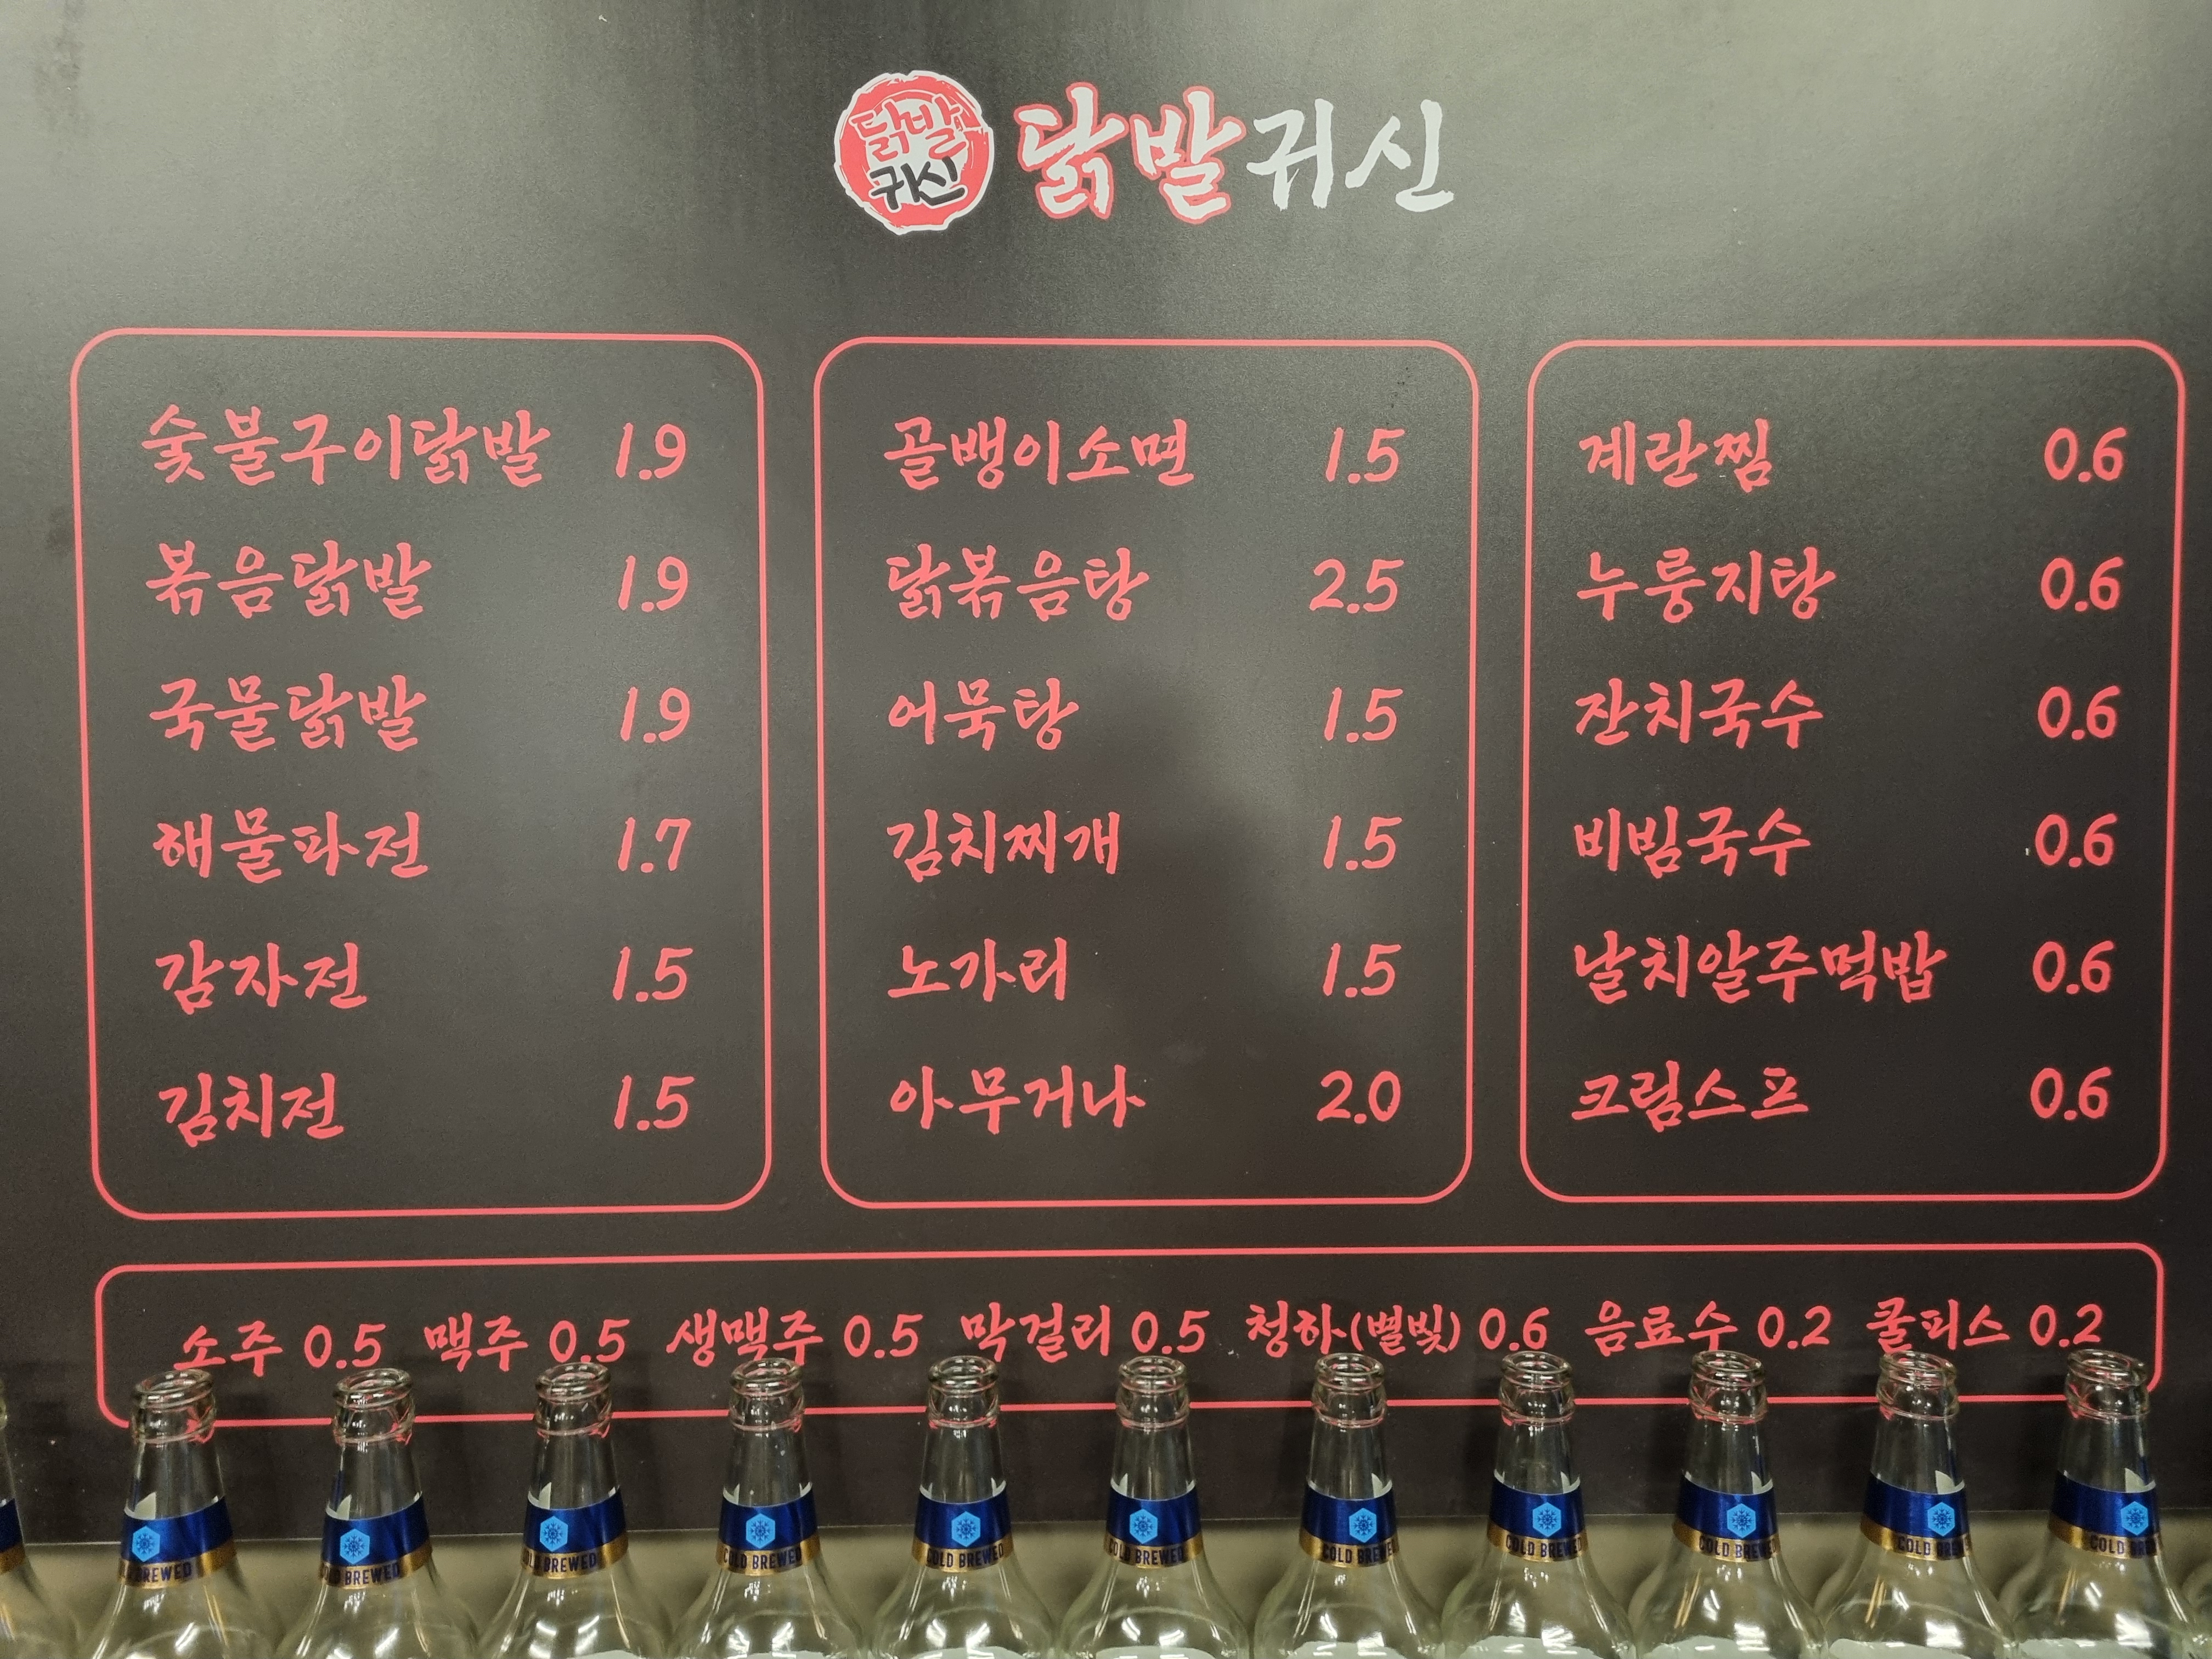 닭발
귀신
닭발귀신
숯불구이닭발 1.9
볶음닭발 1.9
국물닭발 1.9
해물파전 1.7
감자전 1.5
김치전 1.5
골뱅이소면 1.5
닭볶음탕 2.5
어묵탕 1.5
김치찌개 1.5
노가리 1.5
아무거나 2.0
계란찜 0.6
누룽지탕 0.6
잔치국수 0.6
비빔국수 0.6
날치알주먹밥 0.6
크림스프 0.6
소주 0.5 맥주 0.5 생맥주 0.5 막걸리 0.5 청하(별빛) 0.6 음료수 0.2 쿨피스 0.2
COLD BREWED
COLD BREWED
COLD BREWED
COLD BREWED
COLD BREWED
COLD BREWED
COLD BREWED
COLD BREWED
COLD BREWED
COLD BREWED
COLD BREWED